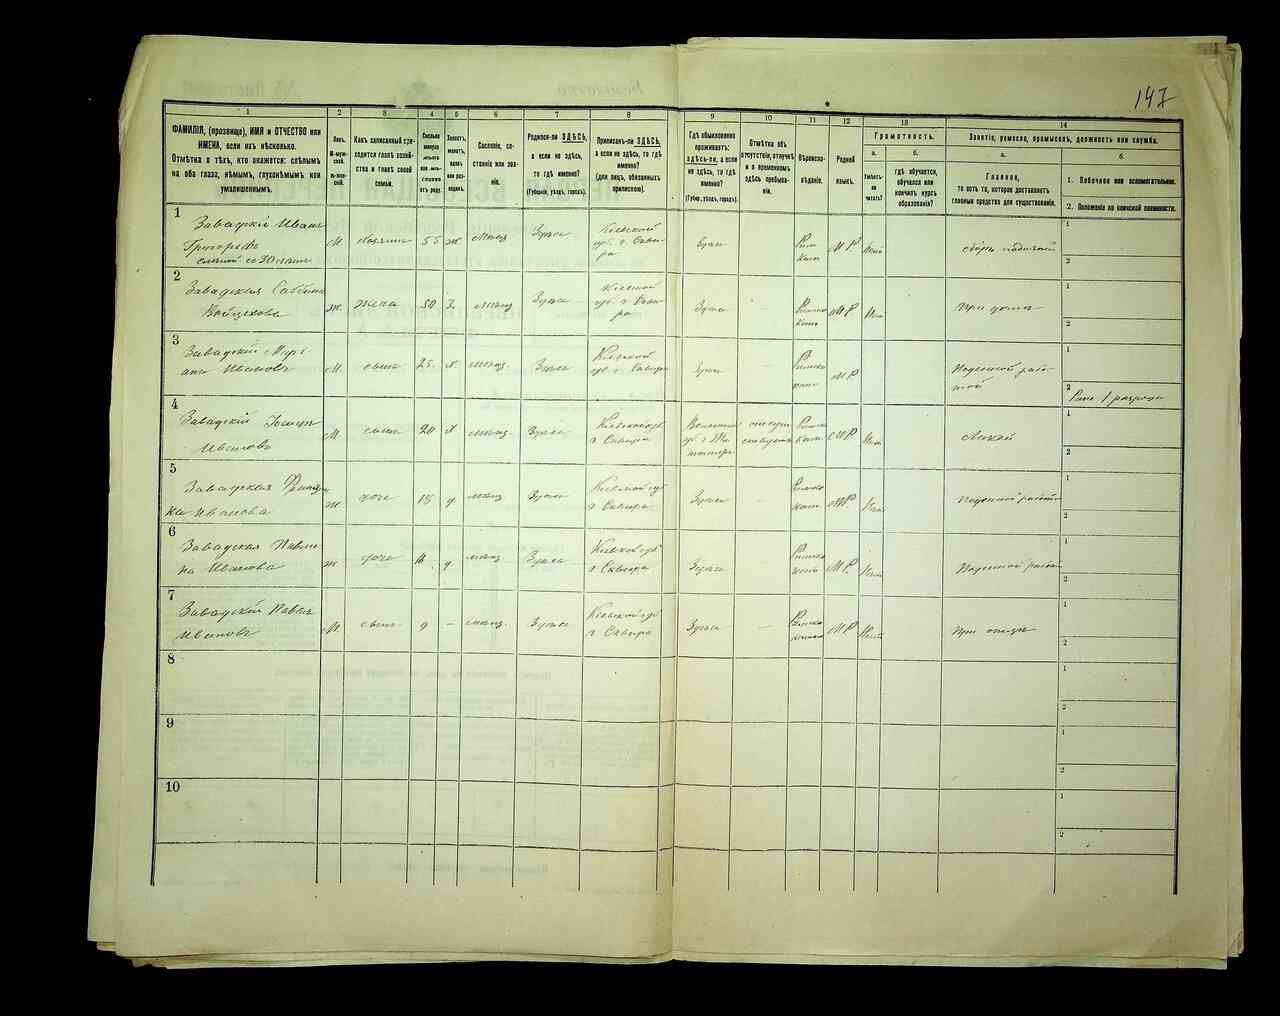 147
1 2 3 4 5 6 7 8 9 10 11 12 13 14
ФАМИЛІЯ, (прозвище), ИМЯ и ОТЧЕСТВО или
ИМЕНА, если ихъ нѣсколько.
Отмѣтка о тѣхъ, кто окажется: слѣпымъ
на оба глаза, нѣмымъ, глухонѣмымъ или
умалишеннымъ.
Полъ.
М-мужской.
Ж-женскій.
Какъ записанный приходится главѣ хозяйства и главѣ своей
семьи.
Сколько минуло лѣтъ или мѣсяцевъ отъ роду.
Холостъ, женатъ, вдовъ или разведенъ.
Сословіе, состояніе или званіе.
Родился-ли ЗДѢСЬ,
а если не здѣсь,
то гдѣ именно?
(Губернія, уѣздъ, городъ).
Приписанъ-ли ЗДѢСЬ,
а если не здѣсь, то гдѣ
именно?
(для лицъ, обязанныхъ
припискою).
Гдѣ обыкновенно
проживаетъ:
здѣсь-ли, а если
не здѣсь, то гдѣ
именно?
(Губер., уѣздъ, городъ).
Отмѣтка объ
отсутствіи, отлучкѣ
и о временномъ
здѣсь пребываніи.
Вѣроисповѣданіе.
Родной
языкъ.
Грамотность.
а.
Умѣетъ-ли
читать?
б.
гдѣ обучается,
обучался или
кончилъ курсъ
образованія?
Занятіе, ремесло, промыселъ, должность или служба.
а.
Главное,
то есть то, которое доставляетъ
главныя средства для существованія.
б.
1. Побочное или вспомогательное.
2. Положеніе по воинской повинности.
1
Завадскій Иванъ
Григорьевъ
слѣпой съ 30 лѣтъ
М хозяинъ 55 ж Мѣщ Здѣсь
Кіевской
губ. г. Сквира
Здѣсь
Рим
Кат
1
2
2
Завадская
Войцехова
ж жена 50 З. мѣщ Здѣсь
Кіевской
губ. г. Сквира
Здѣсь —
Римско
Кат
При домѣ
1
2
3
Завадскій
Ивановъ
М. сынъ 25. х. мѣщ. Здѣсь
Кіевской
губ. г. Сквира
Здѣсь —
Римско
кат
Поденной работой
1
2
Рат. 1 разряда
4
Завадскій Іосифъ
Ивановъ
М сынъ 20 х мѣщ. Здѣсь
Кіевской губ
г Сквира
г Житомиръ
отсутствуетъ
Римско
Кат.
Лакей
1
2
5
Завадская
Иванова
ж дочь 18 д мѣщ. Здѣсь
Кіевской губ
г Сквира
Здѣсь —
Римско
кат.
Поденной работой
1
2
6
Завадская Павлина Иванова
ж дочь д. мѣщ. Здѣсь
Кіевской губ
г Сквира
Здѣсь —
Римско
кат
Поденной работой
1
2
7
Завадскій Павелъ
Ивановъ
М. сынъ 9 — мѣщ. Здѣсь
Кіевской губ
г Сквира
Здѣсь —
Римско
При отцѣ
1
2
8
1
2
9
1
2
10
1
2